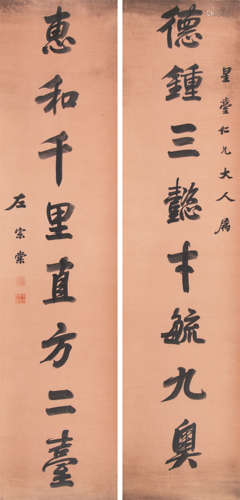 星臺仁兄大人屬
德鍾三懿才毓九奧
惠和千里直方二臺
左宗棠